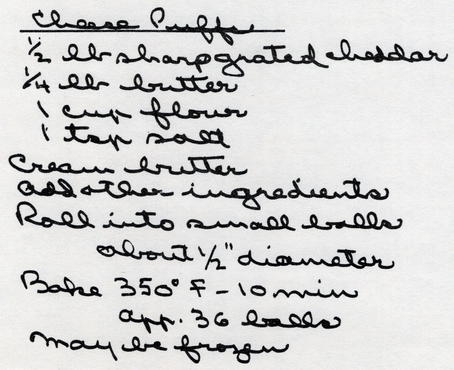 Cheese Puffs
1/2 lb sharp grated cheddar
1/4 lb butter
1 cup flour
1 tsp salt
Cream butter
add other ingredients
Roll into small balls
about 1/2" diameter
Bake 350° F - 10 min
app. 36 balls
may be frozen